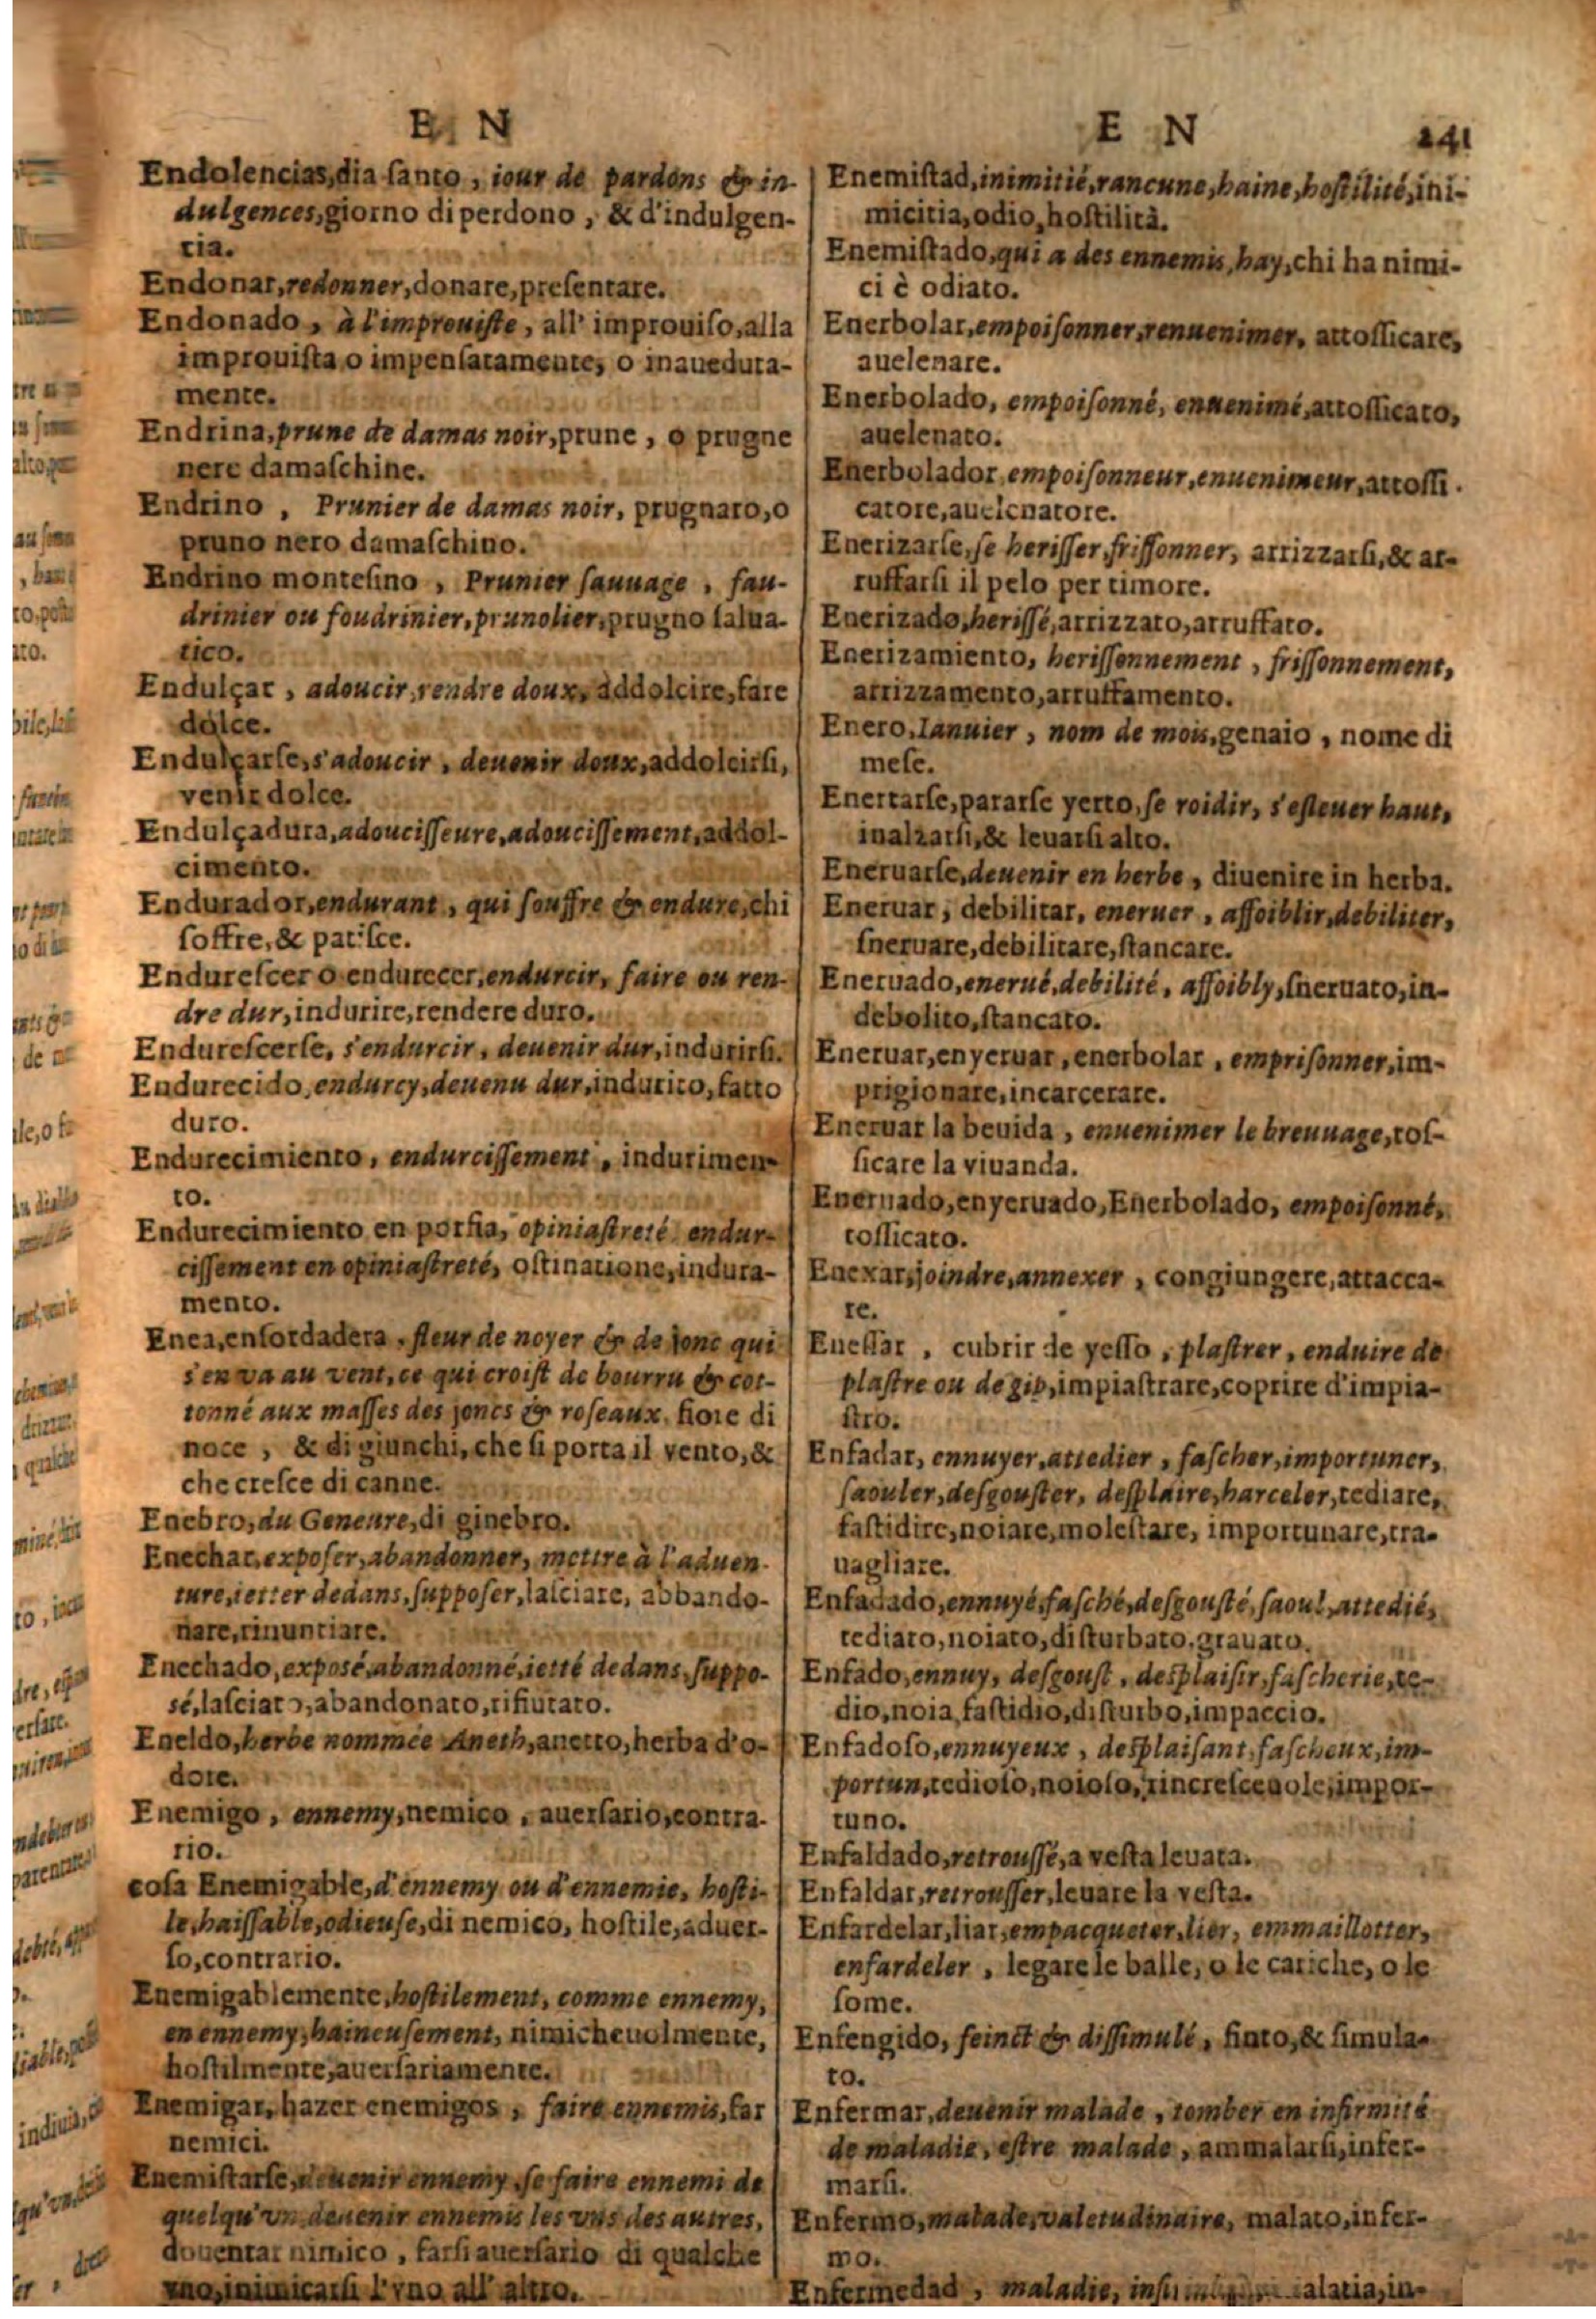 E N
Endolencias,dia ſanto , iour de pardons & in-
dulgences,giorno di perdono , & d'indulgen-
tia.
Endonar,redonner,donare,preſentare.
Endonado , à l'improuiſte , all' improuiſo,alla
improuiſta o impenſatamente, o inaueduta-
mente.
Endrina,prune de damas noir,prune , o prugne
nere damaſchine.
Endrino , Prunier de damas noir, prugnaro,o
pruno nero damaſchino.
Endrino monteſino , Prunier ſauuage , fau-
drinier ou foudrinier,prunolier,prugno ſalua-
tico.
Endulçar , adoucir,rendre doux, addolcire,fare
dolce.
Endulçarſe,s'adoucir , deuenir doux,addolcirſi,
venir dolce.
Endulçadura,adouciſſeure,adouciſſement,addol-
cimento.
Endurador,endurant , qui ſouffre & endure,chi
ſoffre,& patiſce.
Endureſcer o endurecer,endurcir, faire ou ren-
dre dur,indurire,rendere duro.
Endureſcerſe, s'endurcir , deuenir dur,indurirſi.
Endurecido,endurcy,deuenu dur,indurito,fatto
duro.
Endurecimiento , endurciſſement , indurimen-
to.
Endurecimiento en porfia, opiniaſtreté endur-
ciſſement en opiniaſtreté, oſtinatione,indura-
mento.
Enea,enſordadera , fleur de noyer & de jonc qui
s'en va au vent,ce qui croiſt de bourru & cot-
tonné aux maſſes des joncs & roſeaux. fiore di
noce , & di giunchi,che ſi porta il vento,&
che creſce di canne.
Enebro,du Geneure,di ginebro.
Enechar,expoſer,abandonner, mettre à l'aduen-
ture,ietter dedans,ſuppoſer,laſciare, abbando-
nare,rinuntiare.
Enechado,exposé,abandonné,ietté dedans,ſuppo-
sé,laſciato,abandonato,rifiutato.
Eneldo,herbe nommée Aneth,anetto,herba d'o-
dore.
Enemigo , ennemy,nemico , auerſario,contra-
rio.
coſa Enemigable,d'ennemy ou d'ennemie, hoſti-
le,haiſſable,odieuſe,di nemico, hoſtile,aduer-
ſo,contrario.
Enemigablemente,hoſtilement, comme ennemy,
en ennemy,haineuſement, nimicheuolmente,
hoſtilmente,auerſariamente.
Enemigar, hazer enemigos , faire ennemis,far
nemici.
Enemiſtarſe,deuenir ennemy,ſe faire ennemi de
quelqu'vn,deuenir ennemis les vns des autres,
douentar nimico , farſi auerſario di qualche
vno,inimicarſi l'vno all' altro.
E N 241
Enemiſtad,inimitié,rancune,haine,hoſtilité,ini-
micitia,odio,hoſtilità.
Enemiſtado,qui a des ennemis,hay,chi ha nimi-
ci è odiato.
Enerbolar,empoiſonner,renuenimer, attoſſicare,
auelenare.
Enerbolado, empoiſonné, enuenimé,attoſſicato,
auelenato.
Enerbolador,empoiſonneur,enuenimeur,attoſſi-
catore,auelenatore.
Enerizarſe,ſe heriſſer,friſſonner, arrizzarſi,& ar-
ruffarſi il pelo per timore.
Enerizado,heriſſé,arrizzato,arruffato.
Enerizamiento, heriſſonnement , friſſonnement,
arrizzamento,arruffamento.
Enero,Ianuier , nom de mois,genaio , nome di
meſe.
Enertarſe,pararſe yerto,ſe roidir, s'eſleuer haut,
inalzarſi,& leuarſi alto.
Eneruarſe,deuenir en herbe , diuenire in herba.
Eneruar , debilitar, eneruer , affoiblir,debiliter,
ſneruare,debilitare,ſtancare.
Eneruado,enerué,debilité , affoibly,ſneruato,in-
debolito,ſtancato.
Eneruar,enyeruar,enerbolar , empriſonner,im-
prigionare,incarcerare.
Eneruar la beuida , enuenimer le breuuage,toſ-
ſicare la viuanda.
Eneruado,enyeruado,Enerbolado, empoiſonné,
toſſicato.
Enexar,joindre,annexer , congiungere,attacca-
re.
Eneſſar , cubrir de yeſſo , plaſtrer , enduire de
plaſtre ou de gip,impiaſtrare,coprire d'impia-
ſtro.
Enfadar, ennuyer,attedier , faſcher,importuner,
ſaouler,deſgouſter, deſplaire,harceler,tediare,
faſtidire,noiare,moleſtare, importunare,tra-
uagliare.
Enfadado,ennuyé,faſché,deſgouſté,ſaoul,attedié,
tediato,noiato,diſturbato,grauato.
Enfado,ennuy, deſgouſt , deſplaiſir,faſcherie,te-
dio,noia,faſtidio,diſturbo,impaccio.
Enfadoſo,ennuyeux , deſplaiſant,faſcheux,im-
portun,tedioſo,noioſo,rincreſceuole,impor-
tuno.
Enfaldado,retrouſſé,a veſta leuata.
Enfaldar,retrouſſer,leuare la veſta.
Enfardelar,liar,empacqueter,lier, emmaillotter,
enfardeler , legare le balle, o le cariche, o le
ſome.
Enfengido, feinct & diſſimulé , finto,& ſimula-
to.
Enfermar,deuenir malade , tomber en infirmité
de maladie, eſtre malade , ammalarſi,infer-
marſi.
Enfermo,malade,valetudinaire, malato,infer-
mo.
Enfermedad , maladie, malatia,in-